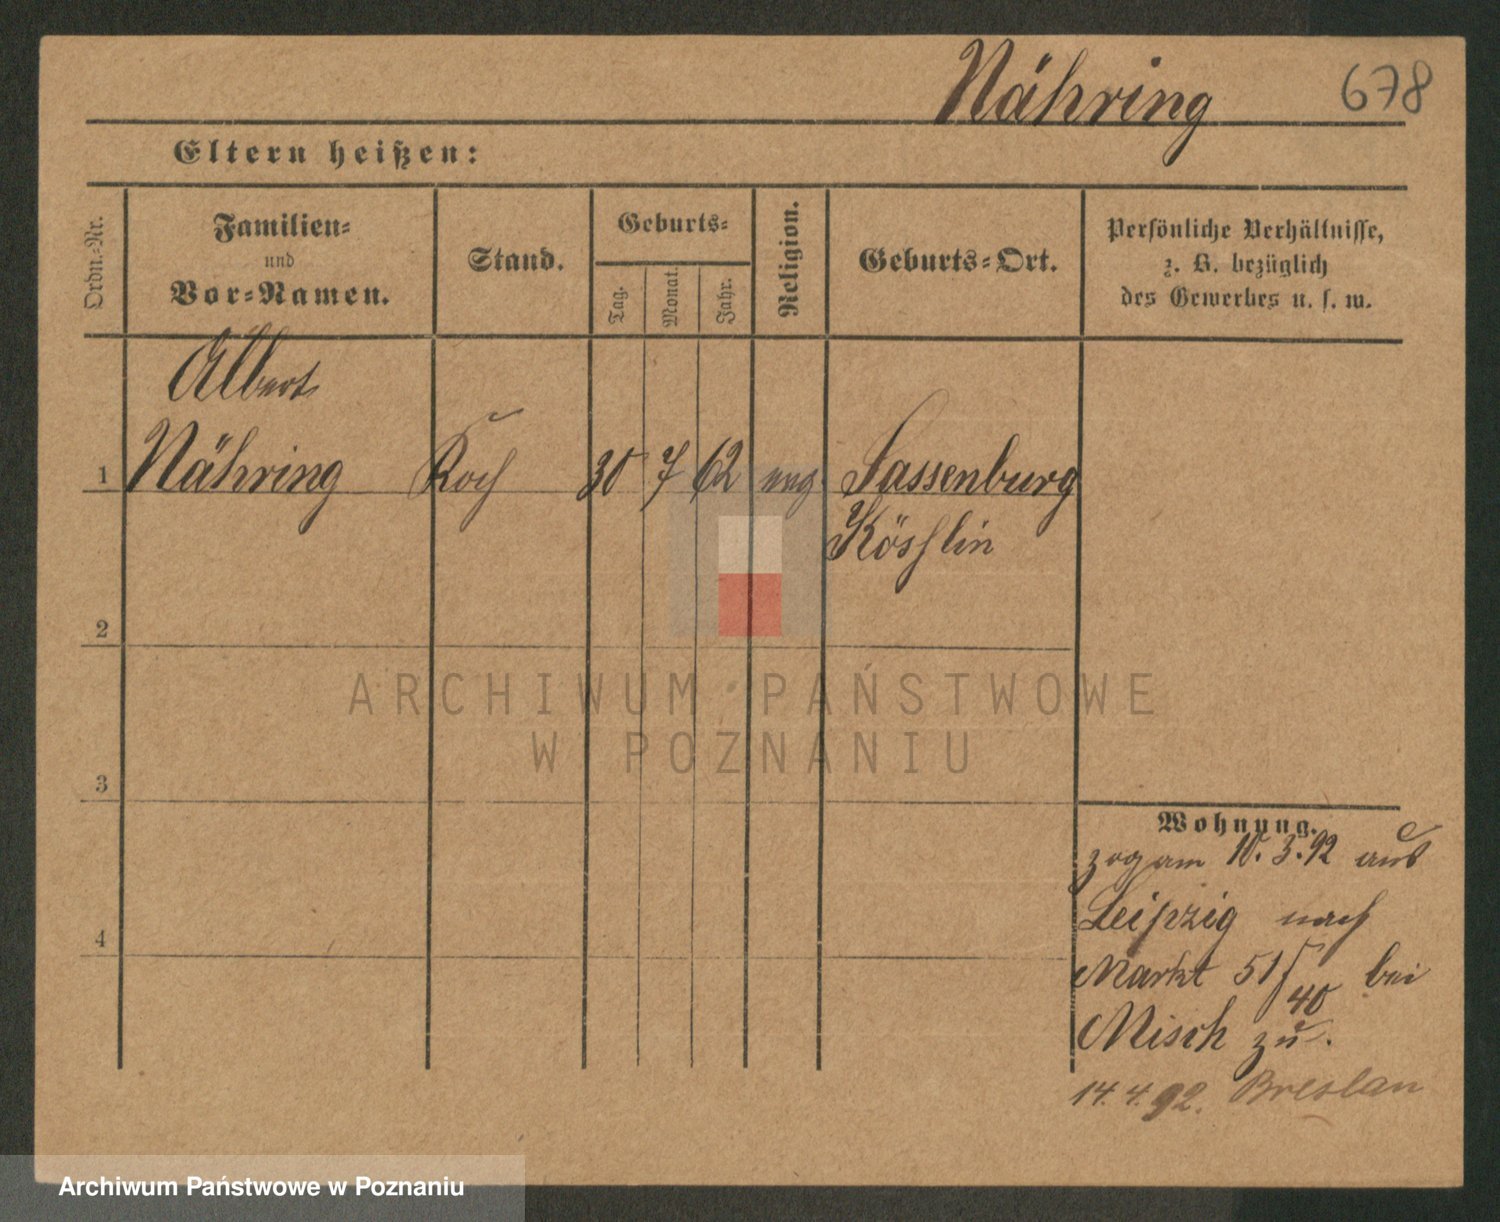 Nähring 678
Eltern heißen:
Ordn.-Nr.
Familien-
und
Vor-Namen.
Stand.
Geburts-
Tag.
Monat.
Jahr.
Religion.
Geburts-Ort.
Persönliche Verhältnisse,
z. B. bezüglich
des Gewerbes u. s. w.
Albert
1 Nähring Koch 30 7 62 evg Sassenburg
Köslin
2
3
4
Wohnung.
zog am 10. 3. 92 aus
Leipzig nach
Markt 51/40 bei
Misch zu.
14. 4. 92. Breslau
ARCHIWUM PAŃSTWOWE
W POZNANIU
Archiwum Państwowe w Poznaniu